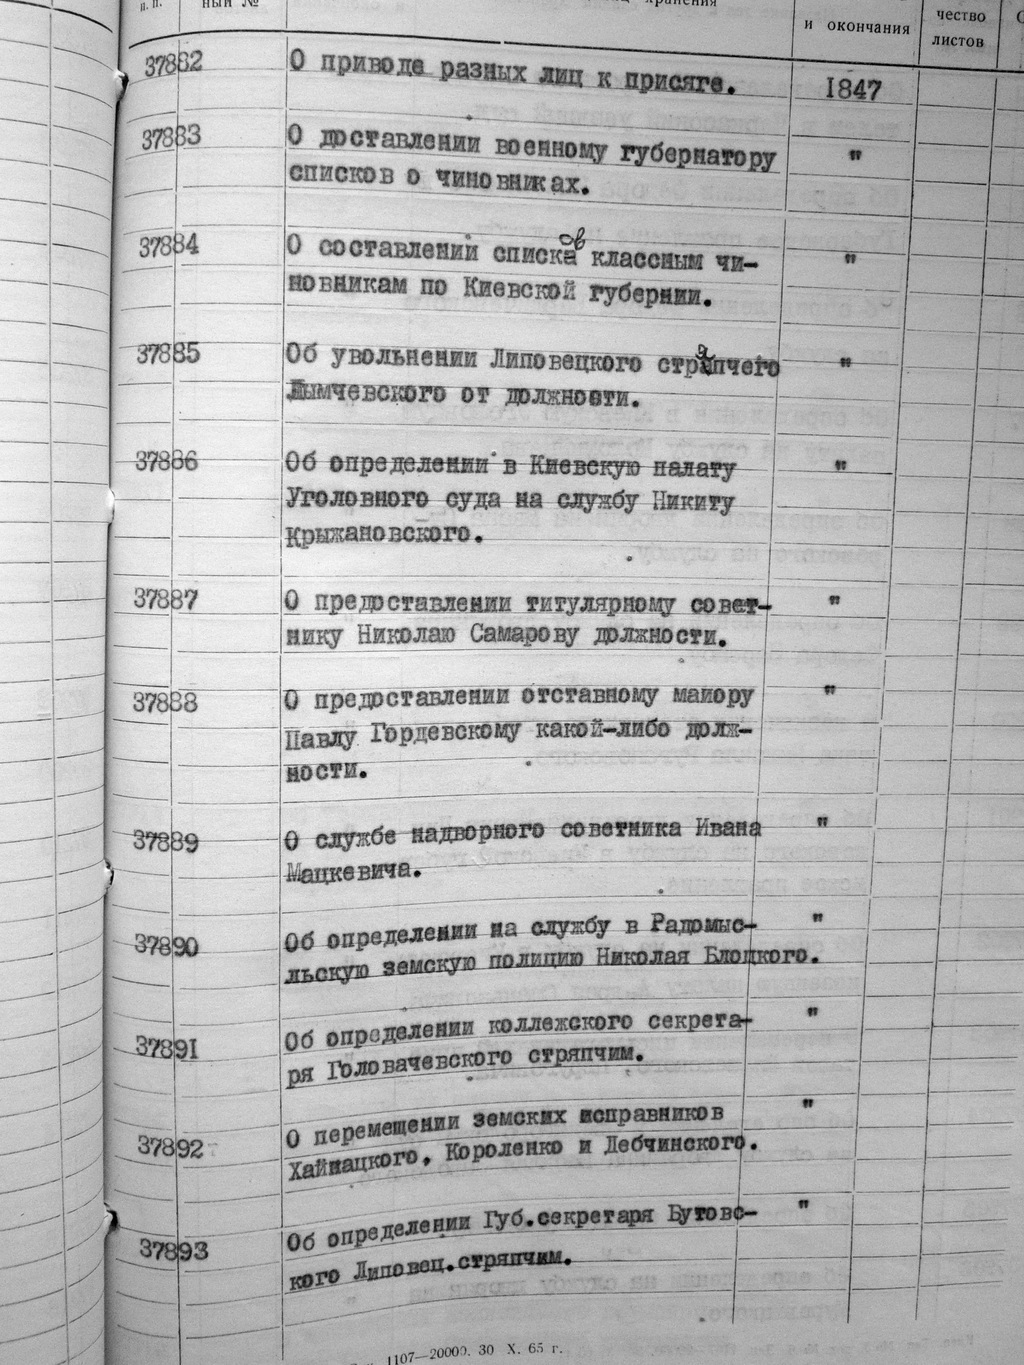 п. п.
ный №
хранения
и окончания
чество
листов
37882 О приводе разных лиц к присяге. 1847
37883 О доставлении военному губернатору "
списков о чиновниках.
37884 О составлений списков классным чи- "
новникам по Киевской губернии.
37885 Об увольнении Липовецкого стряпчего "
Дымчевского от должности.
37886 Об определении в Киевскую палату "
Уголовного суда на службу Никиту
Крыжановского.
37887 О предоставлении титулярному совет- "
нику Николаю Самарову должности.
37888 О предоставлении отставному майору "
Павлу Гордевскому какой-либо долж-
ности.
37889 О службе надворного советника Ивана "
Мацкевича.
37890 Об определении на службу в Радомыс- "
льскую земскую полицию Николая Блоцкого.
37891 Об определении коллежского секрета- "
ря Головачевского стряпчим.
37892 О перемещении земских исправников "
Хайнацкого, Короленко и Дебчинского.
37893 Об определении Губ.секретаря Бутовс- "
кого Липовец.стряпчим.
1107—20000. 30 X. 65 г.